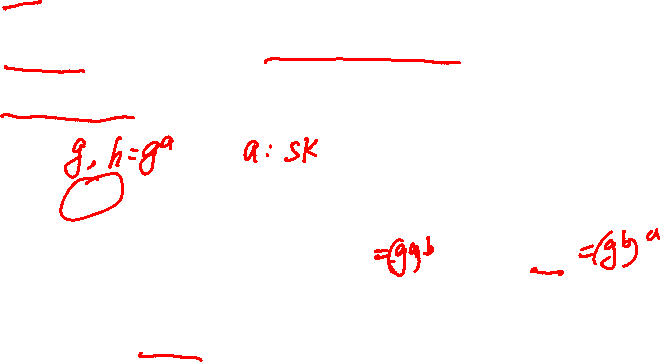 g, h=g^a a: sk
=(g^a)^b =(g^b)^a